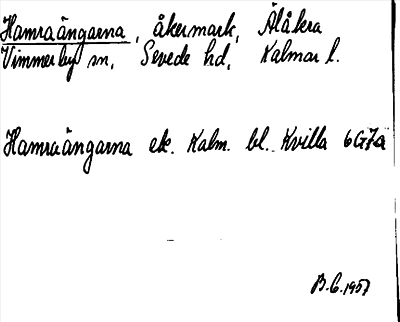 Hamraängarna, åkermark, Älåkra
Vimmerby sn, Sevede hd, Kalmar l.
Hamraängarna ek. Kalm. bl. Kvilla 6G7a
B.C. 1957